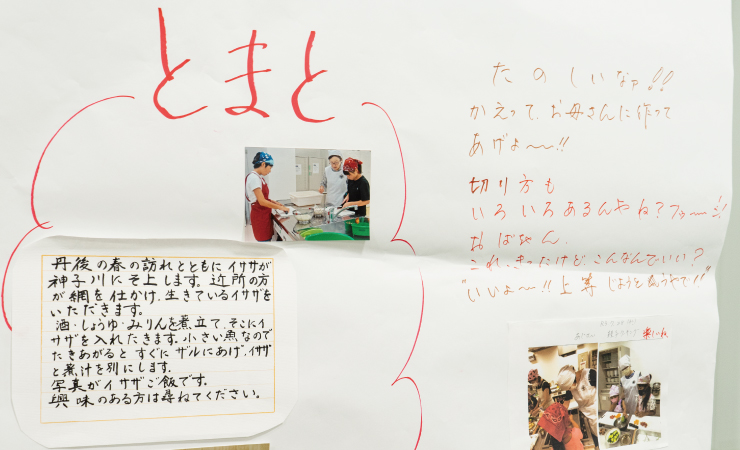 とまと
丹後の春の訪れとともにイサザが
神子川にそ上します。近所の方
が網を仕かけ、生きているイサザを
いただきます。
酒・しょうゆ・みりんを煮立て、そこにイ
サザを入れたきます。小さい魚なので
たきあがると すぐに ザルにあげ、イサザ
と煮汁を別にします。
写真がイサザご飯です。
興味のある方は尋ねてください。
たのしいなァ!!
かえって、お母さんに作って
あげよ〜〜!!
切り方も
いろいろあるんやね?フゥ〜〜ン!
おばちゃん、
これ、きったけど、こんなんでいい?
"いいよ〜〜!!上等 じょうとうやで!!"
楽しいね